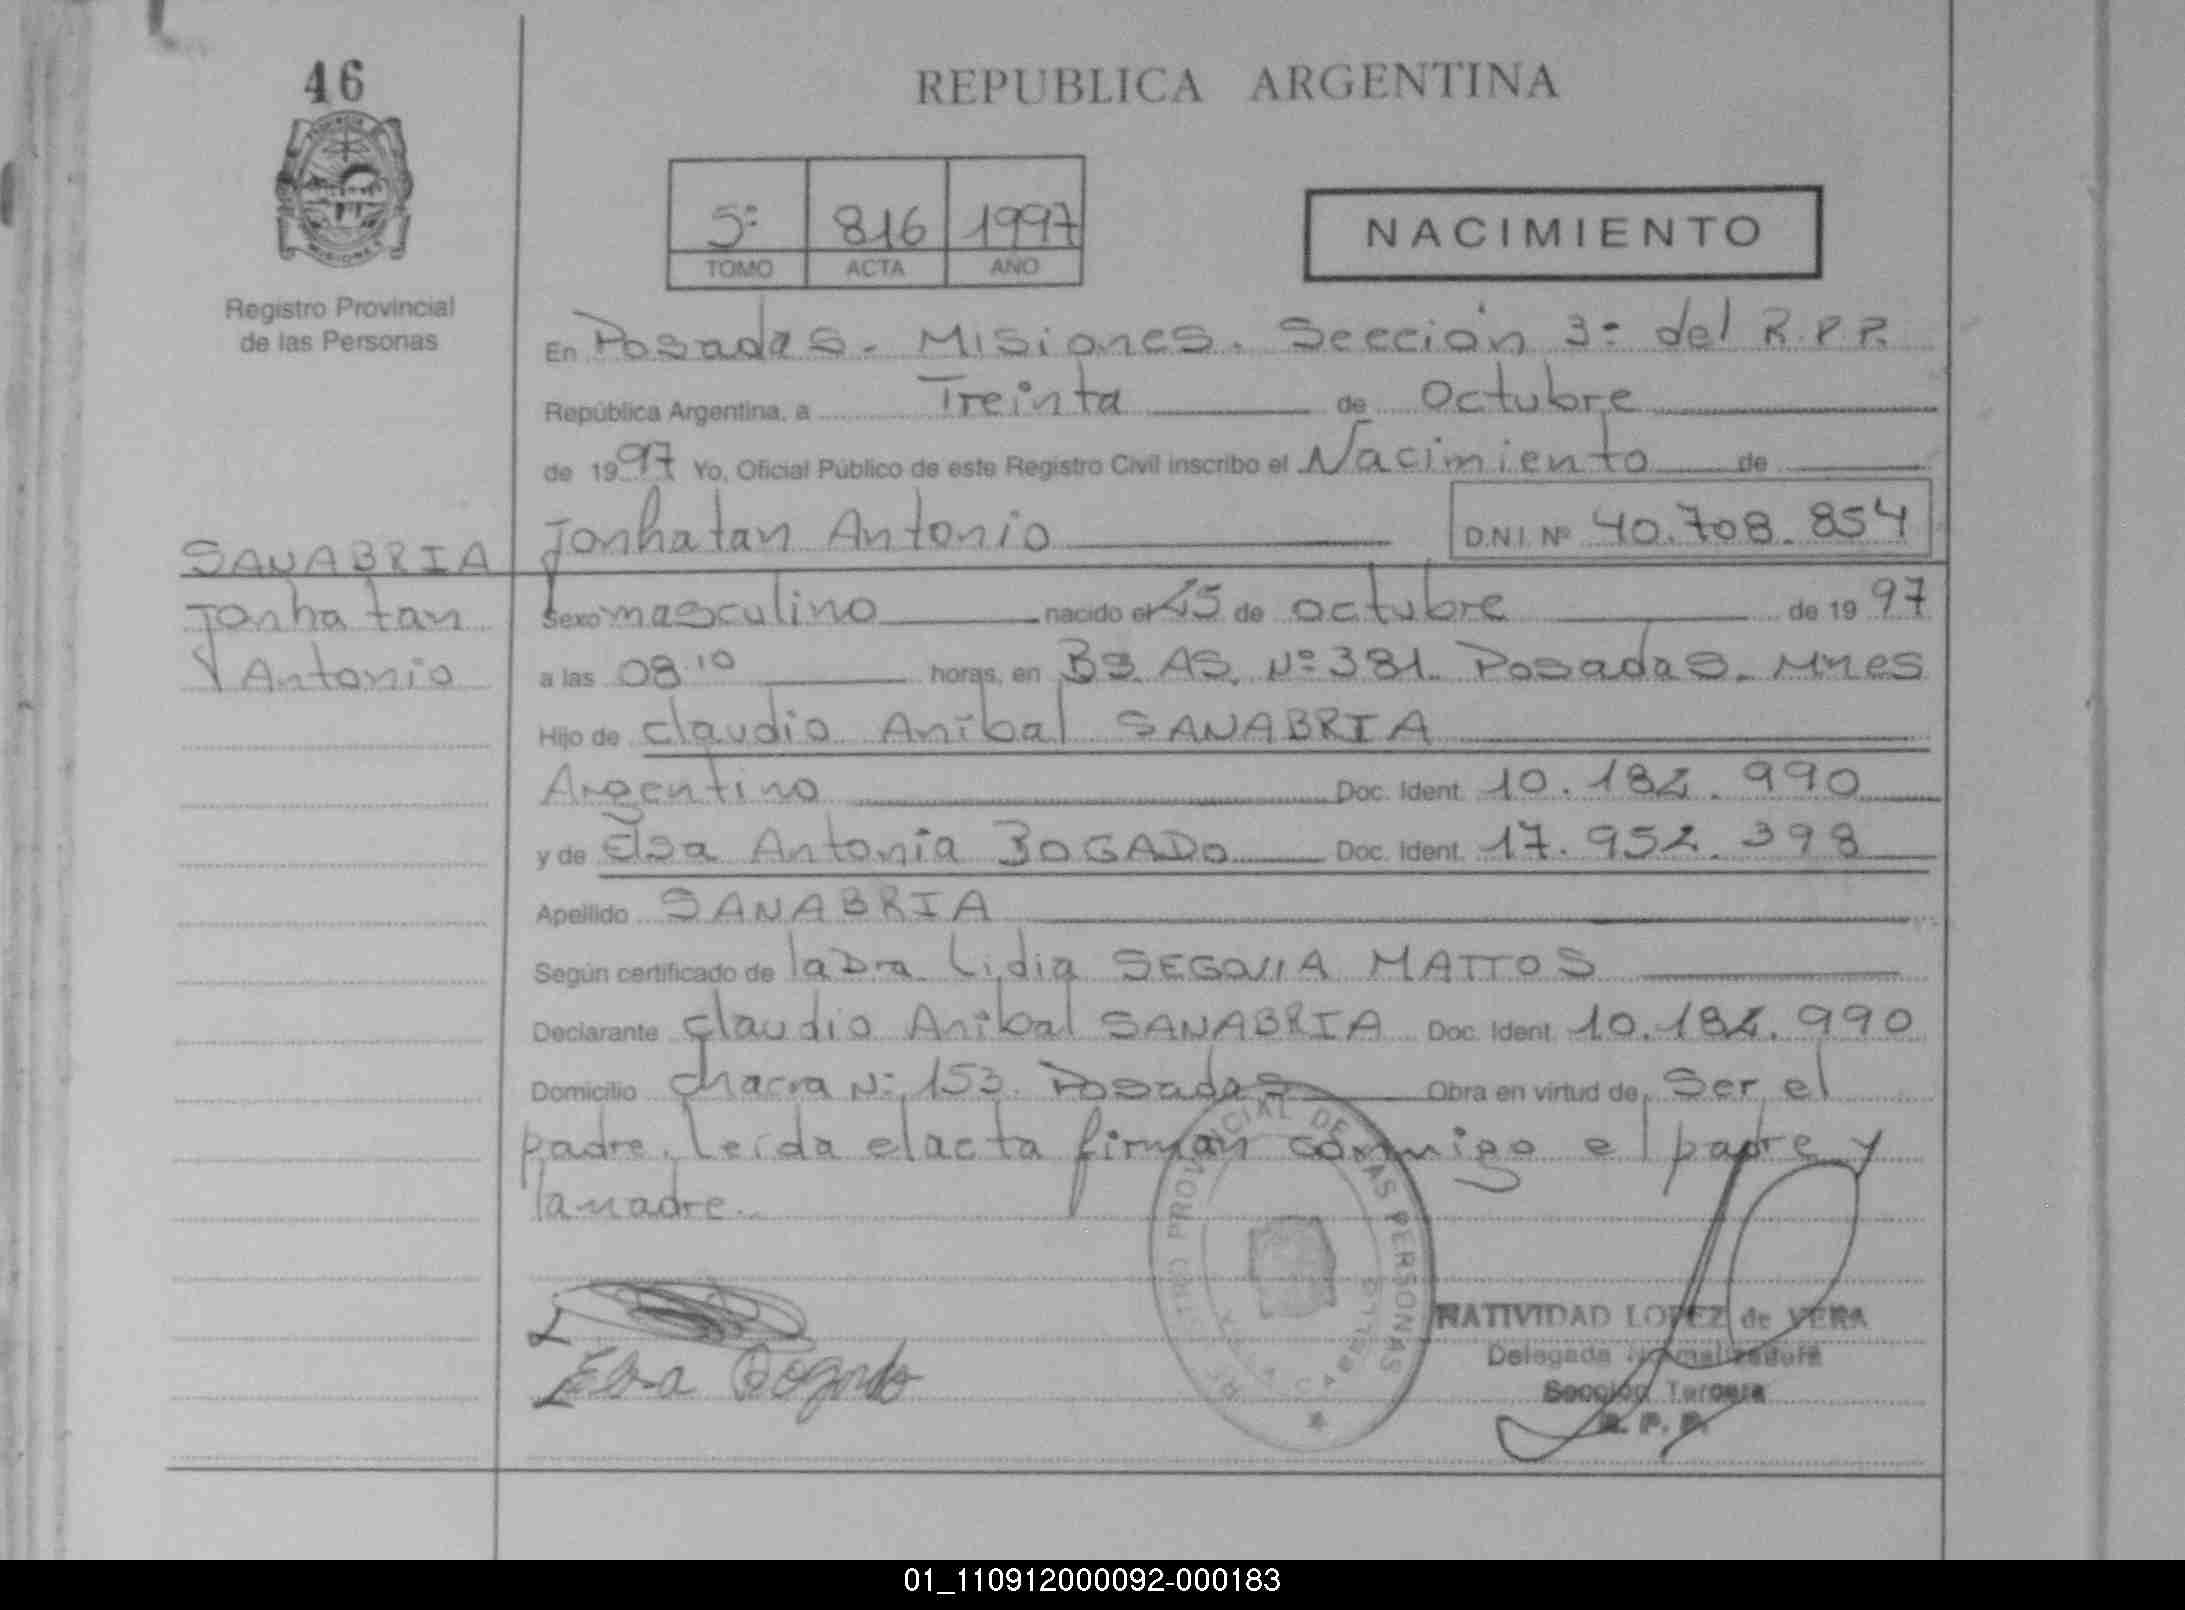 46
REPUBLICA ARGENTINA
5º 816 1997
TOMO ACTA AÑO
NACIMIENTO
Registro Provincial
de las Personas
En Posadas. Misiones. Sección 3º del R.P.P.
República Argentina, a Treinta de Octubre
de 1997 Yo, Oficial Público de este Registro Civil inscribo el Nacimiento de
Jonhatan Antonio D.N.I. Nº 40.708.854
SANABRIA
Jonhatan
Antonio
Sexo masculino nacido el 15 de octubre de 1997
a las 08.10 horas, en BS. AS. Nº 381. Posadas. Mnes
Hijo de Claudio Aníbal SANABRIA
Argentino Doc. Ident. 10.182.990
y de Elsa Antonia BOGADO Doc. Ident. 17.952.398
Apellido SANABRIA
Según certificado de la Dra. Lidia SEGOVIA MATTOS
Declarante Claudio Aníbal SANABRIA Doc. Ident. 10.182.990
Domicilio Chacra Nº 153. Posadas Obra en virtud de Ser el
padre. Leída el acta firman conmigo el padre y
la madre.
REGISTRO PROVINCIAL DE LAS PERSONAS
Elsa Bogado
NATIVIDAD LOPEZ de VERA
Delegada Normalizadora
Sección Tercera
R. P. P.
01_110912000092-000183